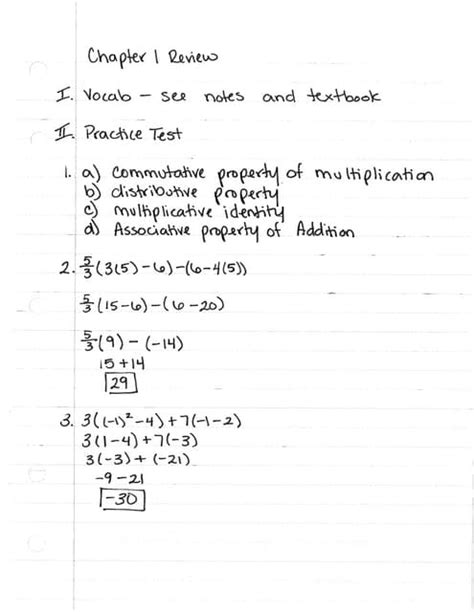 Chapter 1 Review
I. Vocab – see notes and textbook
II. Practice Test
1. a) commutative property of multiplication
b) distributive property
c) multiplicative identity
d) Associative property of Addition
2. 5/3(3(5)-6)-(6-4(5))
5/3(15-6)-(6-20)
5/3(9)-(-14)
15+14
29
3. 3((-1)²-4)+7(-1-2)
3(1-4)+7(-3)
3(-3)+(-21)
-9-21
-30